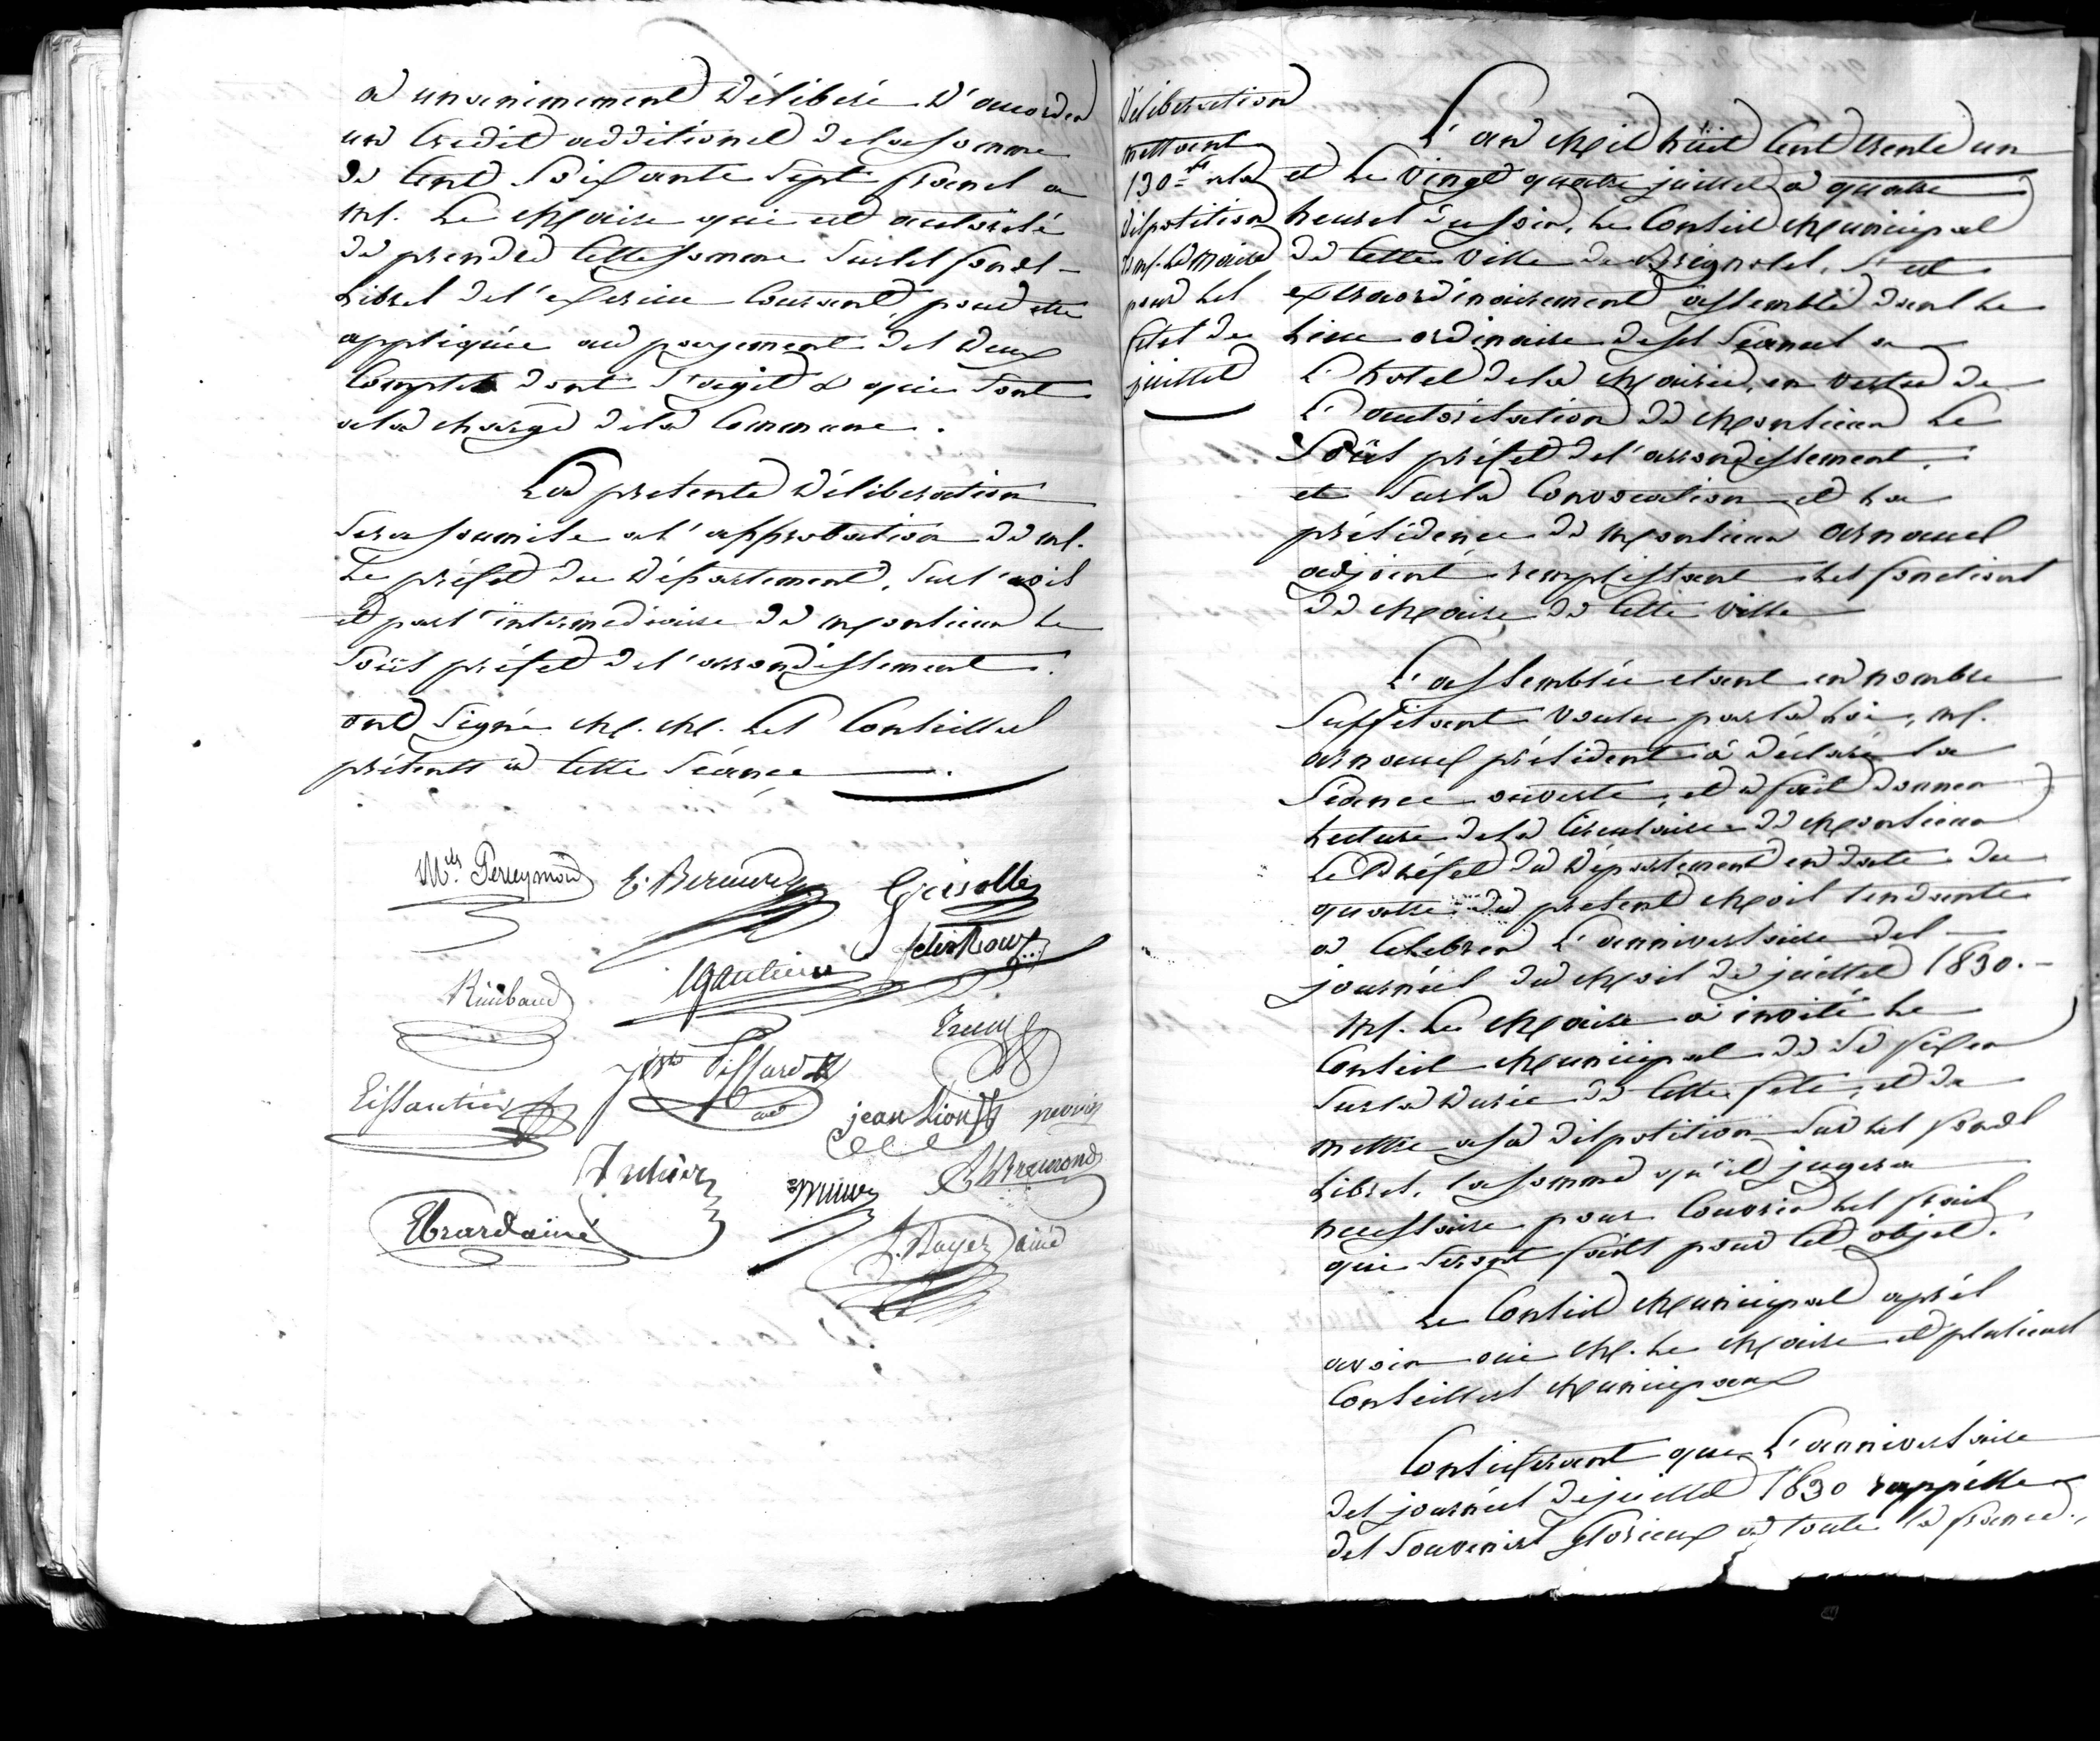 a unanimement délibéré d'accorder
un Credit additionel de la somme
de Cent Soixante Sept francs a
M. Le Maire qui est autorisé
de prendre cette somme sur les fonds
Libres de l'exercice Courant, pour etre
appliquée au payement des deux
Comptes dont s'agit & qui sont
a la charge de la Commune.
La presente délibération
sera soumise a l'approbation de M.
Le préfet du Département, sur l'avis
et par l'intermédiaire de Monsieur le
Sous préfet de l'arrondissement.
ont Signé M. M. Les Conseillers
présents a cette Séance
M.is Perreymond
Grisolle
felix Roux
Rimbaud
Gautier
Eissautier
jean Lion
Ebrard ainé
Boyer ainé
Déliberation
mettant
130 f.cs a la
disposition
de M. le Maire
pour les
fetes de
juillet
L'an Mil huit Cent trente un
et le vingt quatre juillet a quatre
heures du soir, Le Conseil Municipal
de cette Ville de Brignoles, s'est
extraordinairement assemblé dans le
Lieu ordinaire de ses Séances a
L'hotel de la Mairie, en vertu de
L'autorisation de Monsieur Le
Sous préfet de l'arrondissement,
et sur la Convocation et La
présidence de Monsieur arnaud
adjoint remplissant les fonctions
de Maire de cette ville
L'assemblée etant en nombre
suffisant voulu par la Loi, M.
arnaud président a déclaré la
Séance ouverte, et a fait donner
Lecture de la Circulaire de Monsieur
Le Préfet du Département en date du
quatre du present Mois tendante
a Celebrer L'anniversaire des
journées du Mois de juillet 1830.
M. Le Maire a invité Le
Conseil Municipal de se fixer
sur la durée de cette fete, et de
mettre a sa disposition sur les fonds
Libres, la somme qu'il jugera
necessaire pour Couvrir les frais
qui seront faits pour cet objet.
Le Conseil Municipal après
avoir oui M. Le Maire et plusieurs
Conseillers Municipaux
Considerant que L'anniversaire
des journées de juillet 1830 rappelle
des Souvenirs glorieux a toute la france,